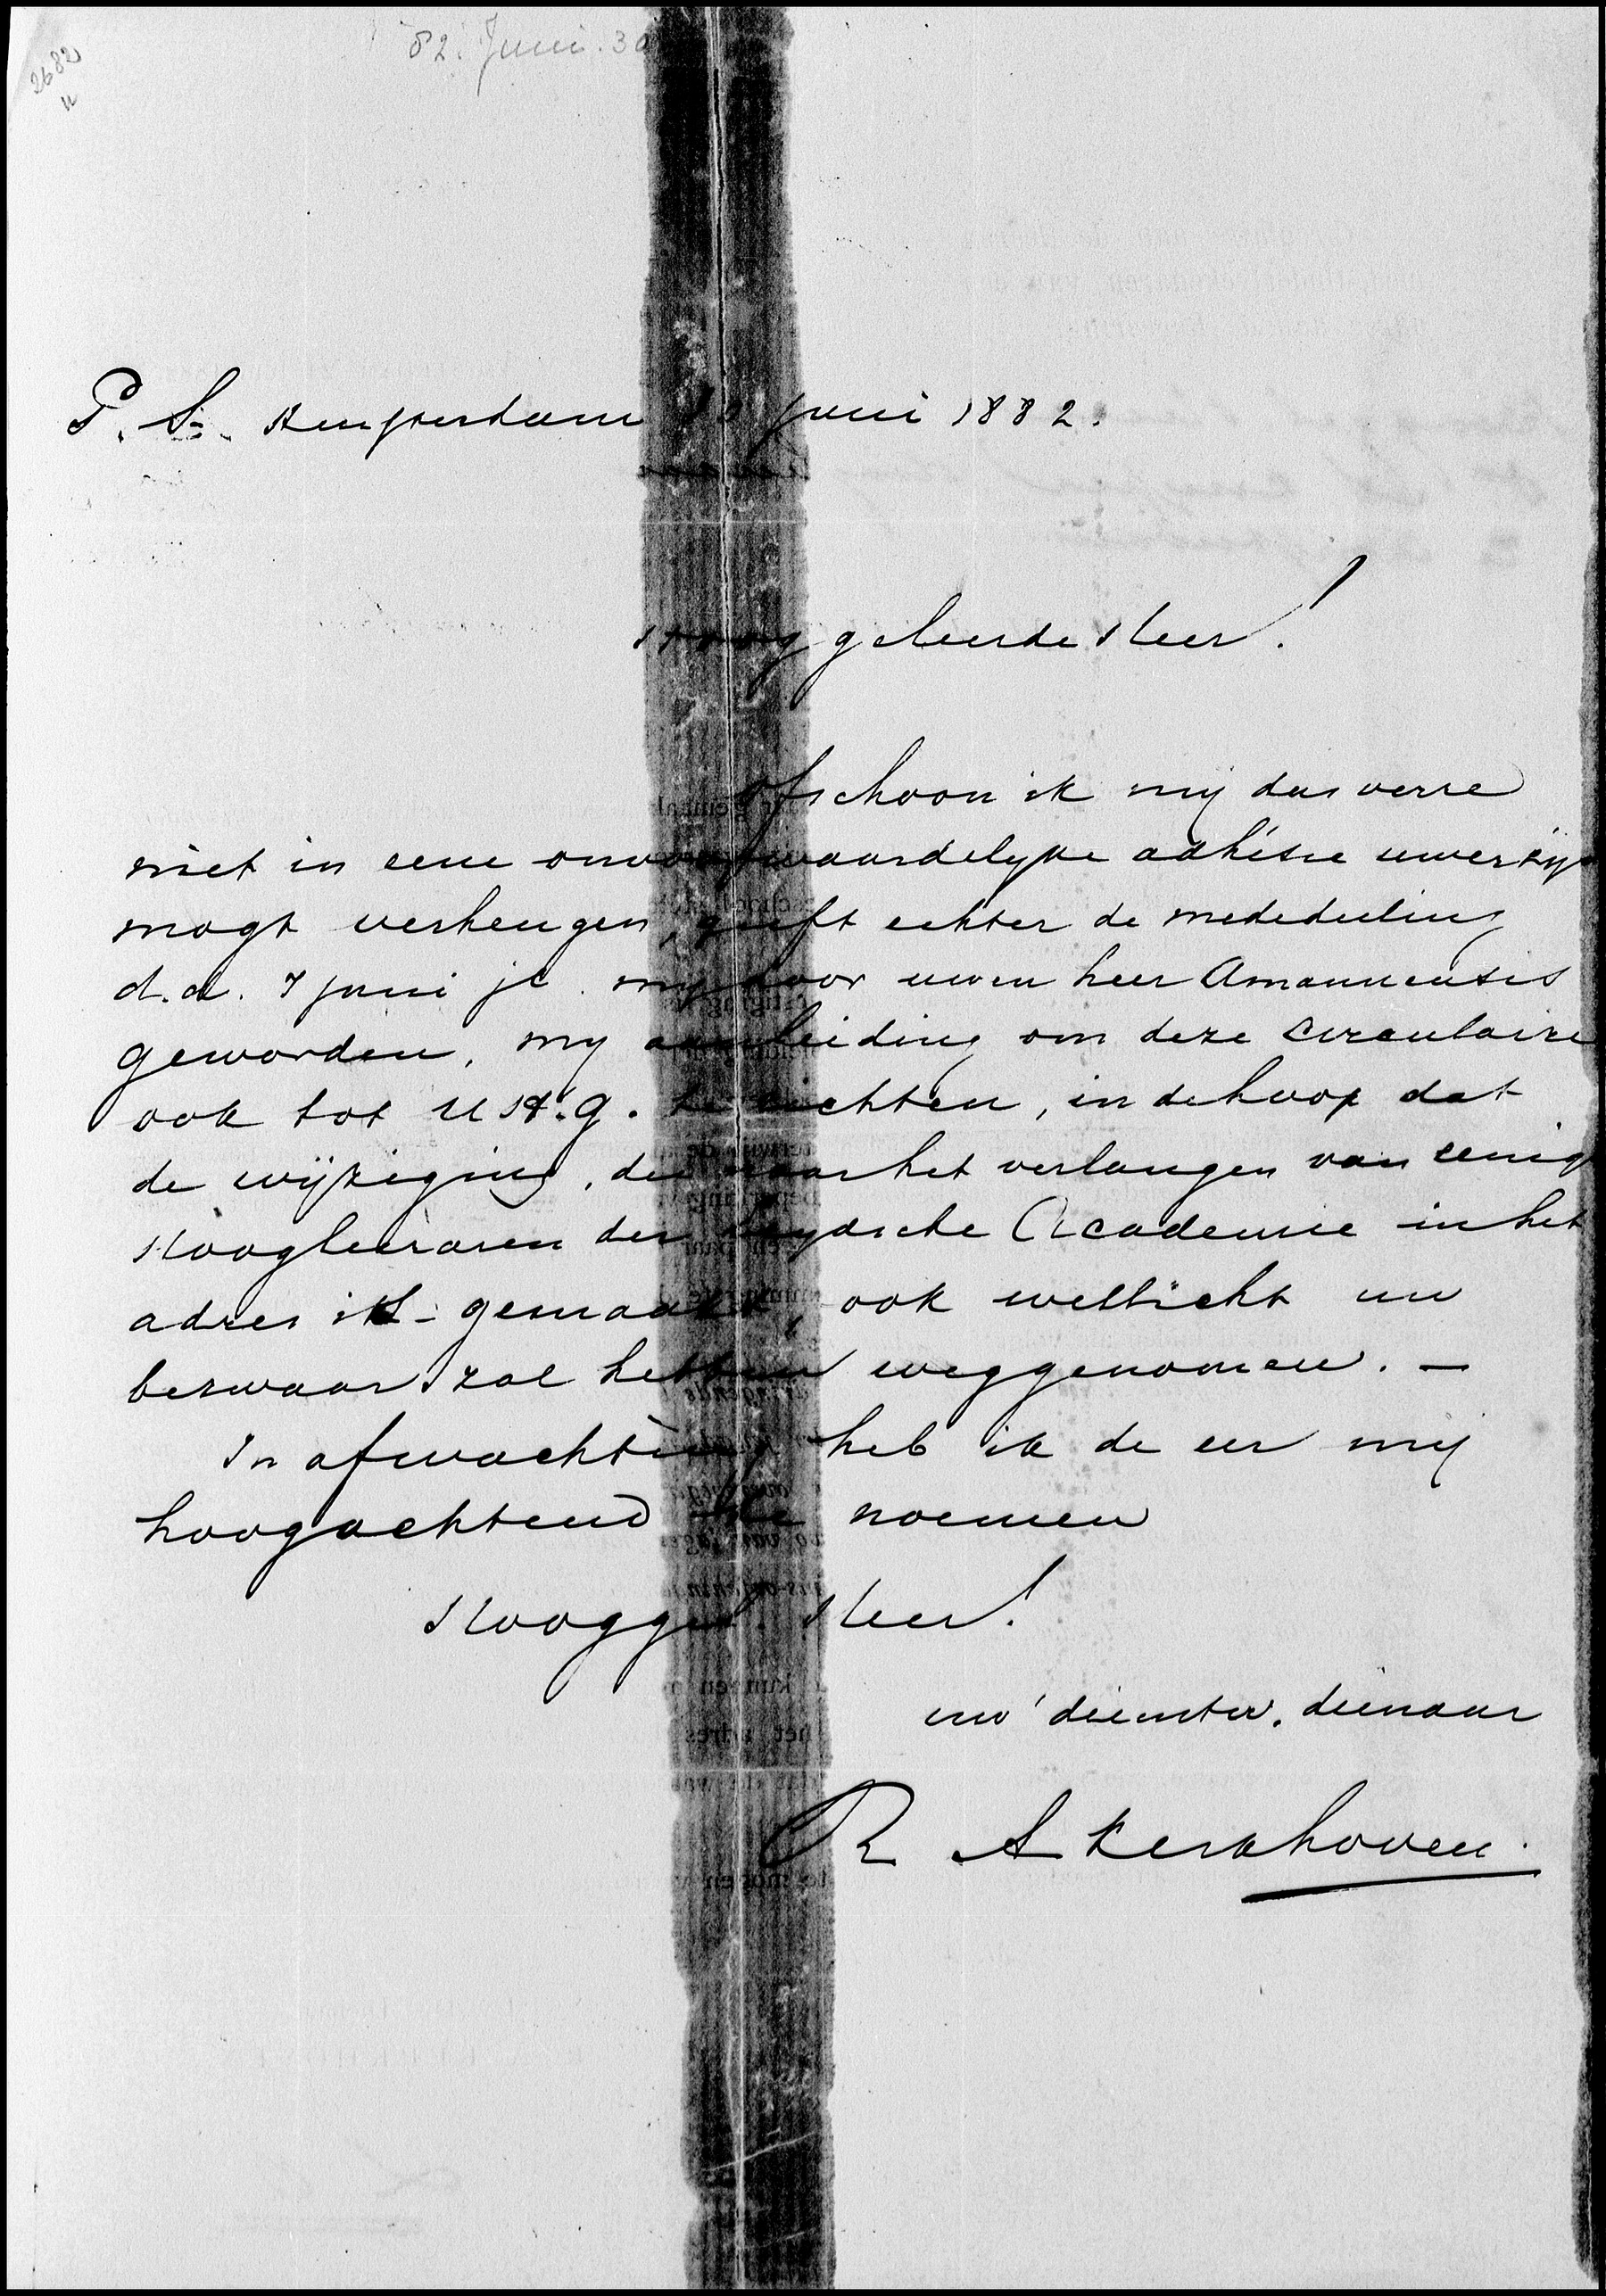 82. Juni. 30
2682
P. S. Amsterdam 30 Juni 1882.
Hooggeleerde Heer!
Ofschoon ik mij dus verre
niet in eene onvoorwaardelyke adhésie uwerzijds
mogt verheugen, geeft echter de mededeeling
d.d. 7 Juni jl. my door uwen heer Amanuensis
geworden, my aanleiding om deze circulaire
ook tot U H.G. te richten, in de hoop dat
de wijziging, die naar het verlangen van eenige
Hoogleeraren der Leydsche Academie in het
adres is gemaakt, ook wellicht uw
bezwaar zal hebben weggenomen. —
In afwachting heb ik de eer mij
hoogachtend te noemen
Hooggel. Heer!
uw dienstw. dienaar
R A Kerkhoven.